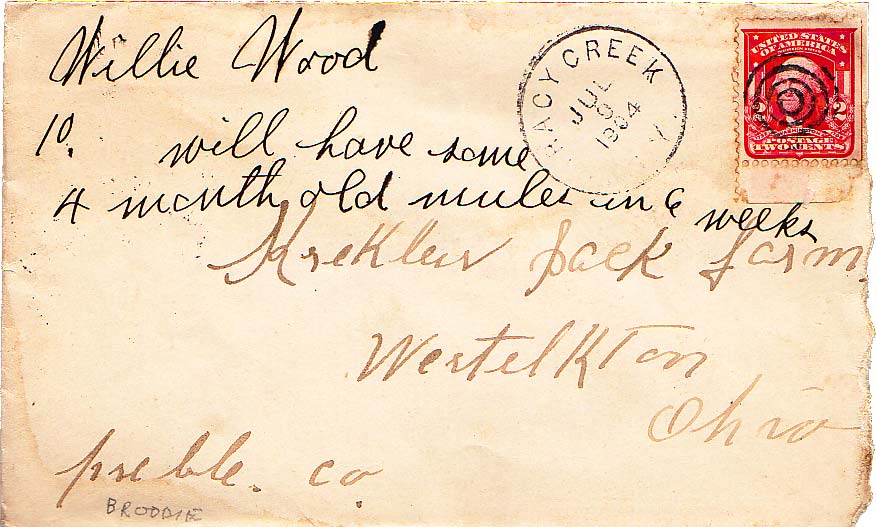 Willie Wood
10.
will have some
4 month old mules in 6 weeks
RACY CREEK
JUL
1904
UNITED STATES
OF AMERICA
2 2
POSTAGE
TWO CENTS
Krekler jack farm
Westelkton
Ohio
preble. co
BRODDIE